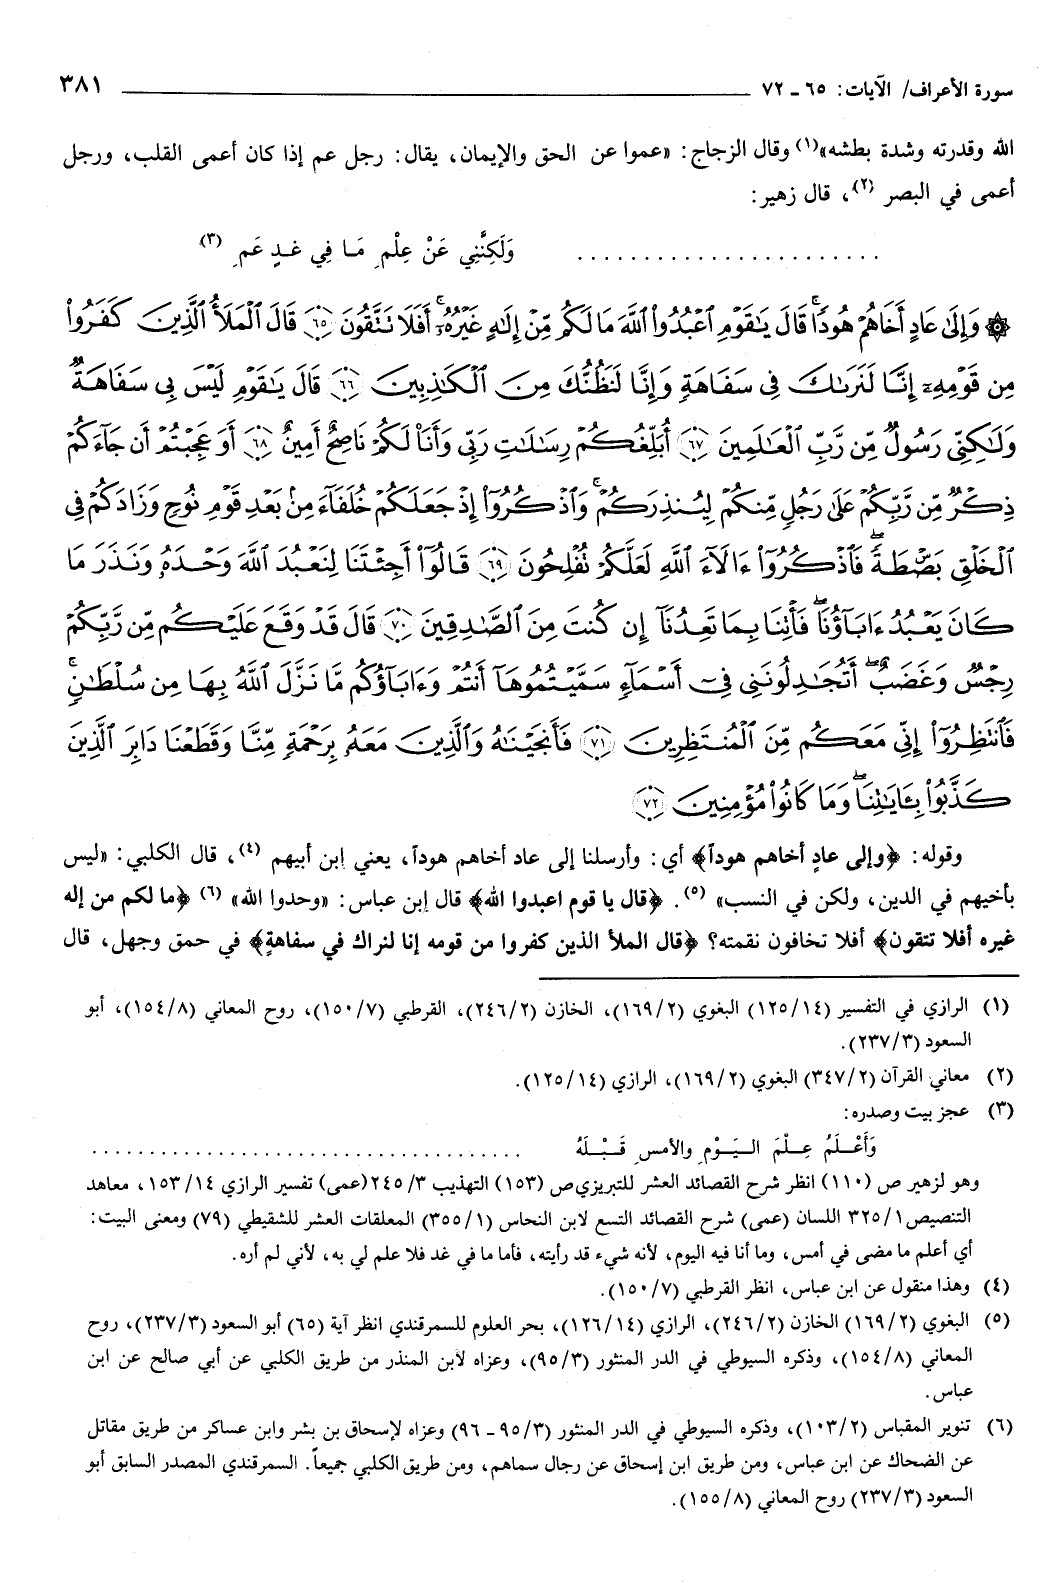 سورة الأعراف/ الآيات: ٦٥ ـ ٧٢ ٣٨١
الله وقدرته وشدة بطشه»(١) وقال الزجاج: «عموا عن الحق والإيمان، يقال: رجل عم إذا كان أعمى القلب، ورجل
أعمى في البصر (٢)، قال زهير:
....................... وَلَكِنَّنِي عَنْ عِلْمِ مَـا فِي غـدٍ عَمِ (٣)
۞ وَإِلَىٰ عَادٍ أَخَاهُمْ هُودًاۗ قَالَ يَٰقَوْمِ ٱعْبُدُوا۟ ٱللَّهَ مَا لَكُم مِّنْ إِلَٰهٍ غَيْرُهُۥٓۚ أَفَلَا تَتَّقُونَ ﴿٦٥﴾ قَالَ ٱلْمَلَأُ ٱلَّذِينَ كَفَرُوا۟
مِن قَوْمِهِۦٓ إِنَّا لَنَرَىٰكَ فِى سَفَاهَةٍ وَإِنَّا لَنَظُنُّكَ مِنَ ٱلْكَٰذِبِينَ ﴿٦٦﴾ قَالَ يَٰقَوْمِ لَيْسَ بِى سَفَاهَةٌ
وَلَٰكِنِّى رَسُولٌ مِّن رَّبِّ ٱلْعَٰلَمِينَ ﴿٦٧﴾ أُبَلِّغُكُمْ رِسَٰلَٰتِ رَبِّى وَأَنَا۠ لَكُمْ نَاصِحٌ أَمِينٌ ﴿٦٨﴾ أَوَعَجِبْتُمْ أَن جَآءَكُمْ
ذِكْرٌ مِّن رَّبِّكُمْ عَلَىٰ رَجُلٍ مِّنكُمْ لِيُنذِرَكُمْۚ وَٱذْكُرُوٓا۟ إِذْ جَعَلَكُمْ خُلَفَآءَ مِنۢ بَعْدِ قَوْمِ نُوحٍ وَزَادَكُمْ فِى
ٱلْخَلْقِ بَصْۜطَةًۖ فَٱذْكُرُوٓا۟ ءَالَآءَ ٱللَّهِ لَعَلَّكُمْ تُفْلِحُونَ ﴿٦٩﴾ قَالُوٓا۟ أَجِئْتَنَا لِنَعْبُدَ ٱللَّهَ وَحْدَهُۥ وَنَذَرَ مَا
كَانَ يَعْبُدُ ءَابَآؤُنَاۖ فَأْتِنَا بِمَا تَعِدُنَآ إِن كُنتَ مِنَ ٱلصَّٰدِقِينَ ﴿٧٠﴾ قَالَ قَدْ وَقَعَ عَلَيْكُم مِّن رَّبِّكُمْ
رِجْسٌ وَغَضَبٌۖ أَتُجَٰدِلُونَنِى فِىٓ أَسْمَآءٍ سَمَّيْتُمُوهَآ أَنتُمْ وَءَابَآؤُكُم مَّا نَزَّلَ ٱللَّهُ بِهَا مِن سُلْطَٰنٍۚ
فَٱنتَظِرُوٓا۟ إِنِّى مَعَكُم مِّنَ ٱلْمُنتَظِرِينَ ﴿٧١﴾ فَأَنجَيْنَٰهُ وَٱلَّذِينَ مَعَهُۥ بِرَحْمَةٍ مِّنَّا وَقَطَعْنَا دَابِرَ ٱلَّذِينَ
كَذَّبُوا۟ بِـَٔايَٰتِنَاۖ وَمَا كَانُوا۟ مُؤْمِنِينَ ﴿٧٢﴾
وقوله: ﴿وإلى عادٍ أخاهم هوداً﴾ أي: وأرسلنا إلى عاد أخاهم هوداً، يعني إبن أبيهم (٤)، قال الكلبي: «ليس
بأخيهم في الدين، ولكن في النسب» (٥). ﴿قال يا قوم اعبدوا الله﴾ قال إبن عباس: «وحدوا الله» (٦) ﴿ما لكم من إله
غيره أفلا تتقون﴾ أفلا تخافون نقمته؟ ﴿قال الملأ الذين كفروا من قومه إنا لنراك في سفاهةٍ﴾ في حمق وجهل، قال
(١) الرازي في التفسير (١٢٥/١٤) البغوي (١٦٩/٢)، الخازن (٢٤٦/٢)، القرطبي (١٥٠/٧)، روح المعاني (١٥٤/٨)، أبو
السعود (٢٣٧/٣).
(٢) معاني القرآن (٣٤٧/٢) البغوي (١٦٩/٢)، الرازي (١٢٥/١٤).
(٣) عجز بيت وصدره:
وَأَعْـلَمُ عِلْـمَ اليَـوْمِ والأمسِ قَبْـلَهُ .....................................
وهو لزهير ص (١١٠) انظر شرح القصائد العشر للتبريزي ص (١٥٣) التهذيب ٢٤٥/٣ (عمى) تفسير الرازي ١٥٣/١٤، معاهد
التنصيص ٣٢٥/١ اللسان (عمى) شرح القصائد التسع لابن النحاس (٣٥٥/١) المعلقات العشر للشقيطي (٧٩) ومعنى البيت:
أي أعلم ما مضى في أمس، وما أنا فيه اليوم، لأنه شيء قد رأيته، فأما ما في غد فلا علم لي به، لأني لم أره.
(٤) وهذا منقول عن ابن عباس، انظر القرطبي (١٥٠/٧).
(٥) البغوي (١٦٩/٢) الخازن (٢٤٦/٢)، الرازي (١٢٦/١٤)، بحر العلوم للسمرقندي انظر آية (٦٥) أبو السعود (٢٣٧/٣)، روح
المعاني (١٥٤/٨)، وذكره السيوطي في الدر المنثور (٩٥/٣)، وعزاه لابن المنذر من طريق الكلبي عن أبي صالح عن ابن
عباس.
(٦) تنوير المقباس (١٠٣/٢)، وذكره السيوطي في الدر المنثور (٩٥/٣ ـ ٩٦) وعزاه لإسحاق بن بشر وابن عساكر من طريق مقاتل
عن الضحاك عن ابن عباس، ومن طريق ابن إسحاق عن رجال سماهم، ومن طريق الكلبي جميعاً. السمرقندي المصدر السابق أبو
السعود (٢٣٧/٣) روح المعاني (١٥٥/٨).